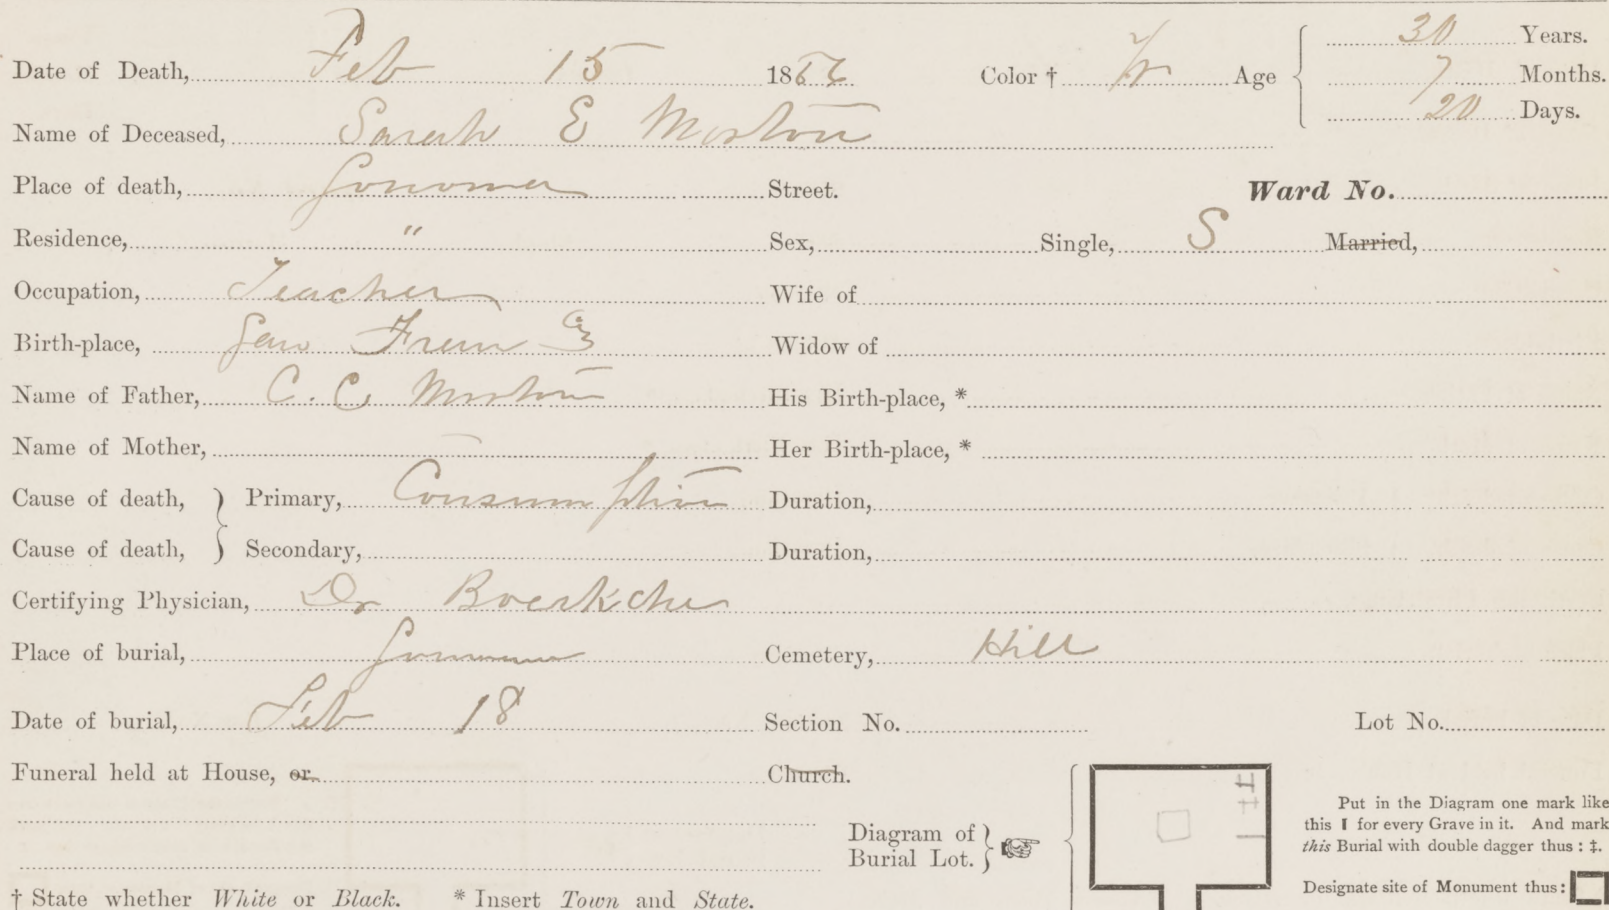 Date of Death, Feb 15 1866 Color † W Age 30 Years.
7 Months.
20 Days.
Name of Deceased, Sarah E Morton
Place of death, Sonoma Street. Ward No.
Residence, " Sex, Single, S Married,
Occupation, Teacher Wife of
Birth-place, San Widow of
Name of Father, C. C Morton His Birth-place, *
Name of Mother, Her Birth-place, *
Cause of death, } Primary, Consumption Duration,
Cause of death, } Secondary, Duration,
Certifying Physician, Dr
Place of burial, Sonoma Cemetery, Hill
Date of burial, Feb 18 Section No. Lot No.
Funeral held at House, or Church.
Diagram of
Burial Lot.
Put in the Diagram one mark like
this I for every Grave in it. And mark
this Burial with double dagger thus : ‡.
Designate site of Monument thus :
† State whether White or Black. * Insert Town and State.